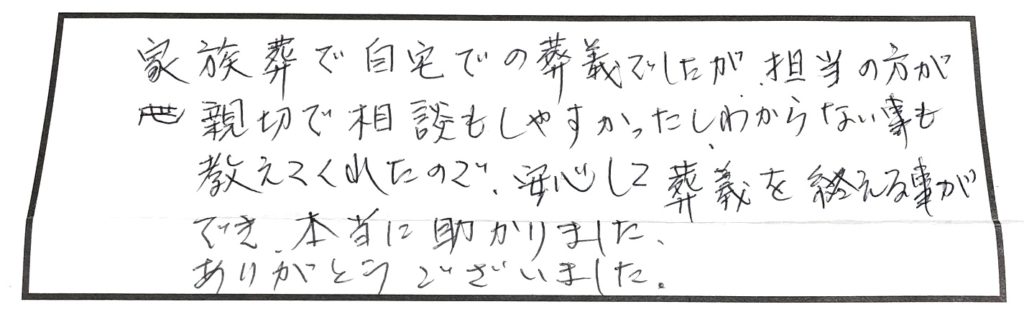 家族葬で自宅での葬義でしたが、担当の方が
親切で相談もしやすかったし、わからない事も
教えてくれたので、安心して葬義を終える事が
でき、本当に助かりました、
ありがとうございました。